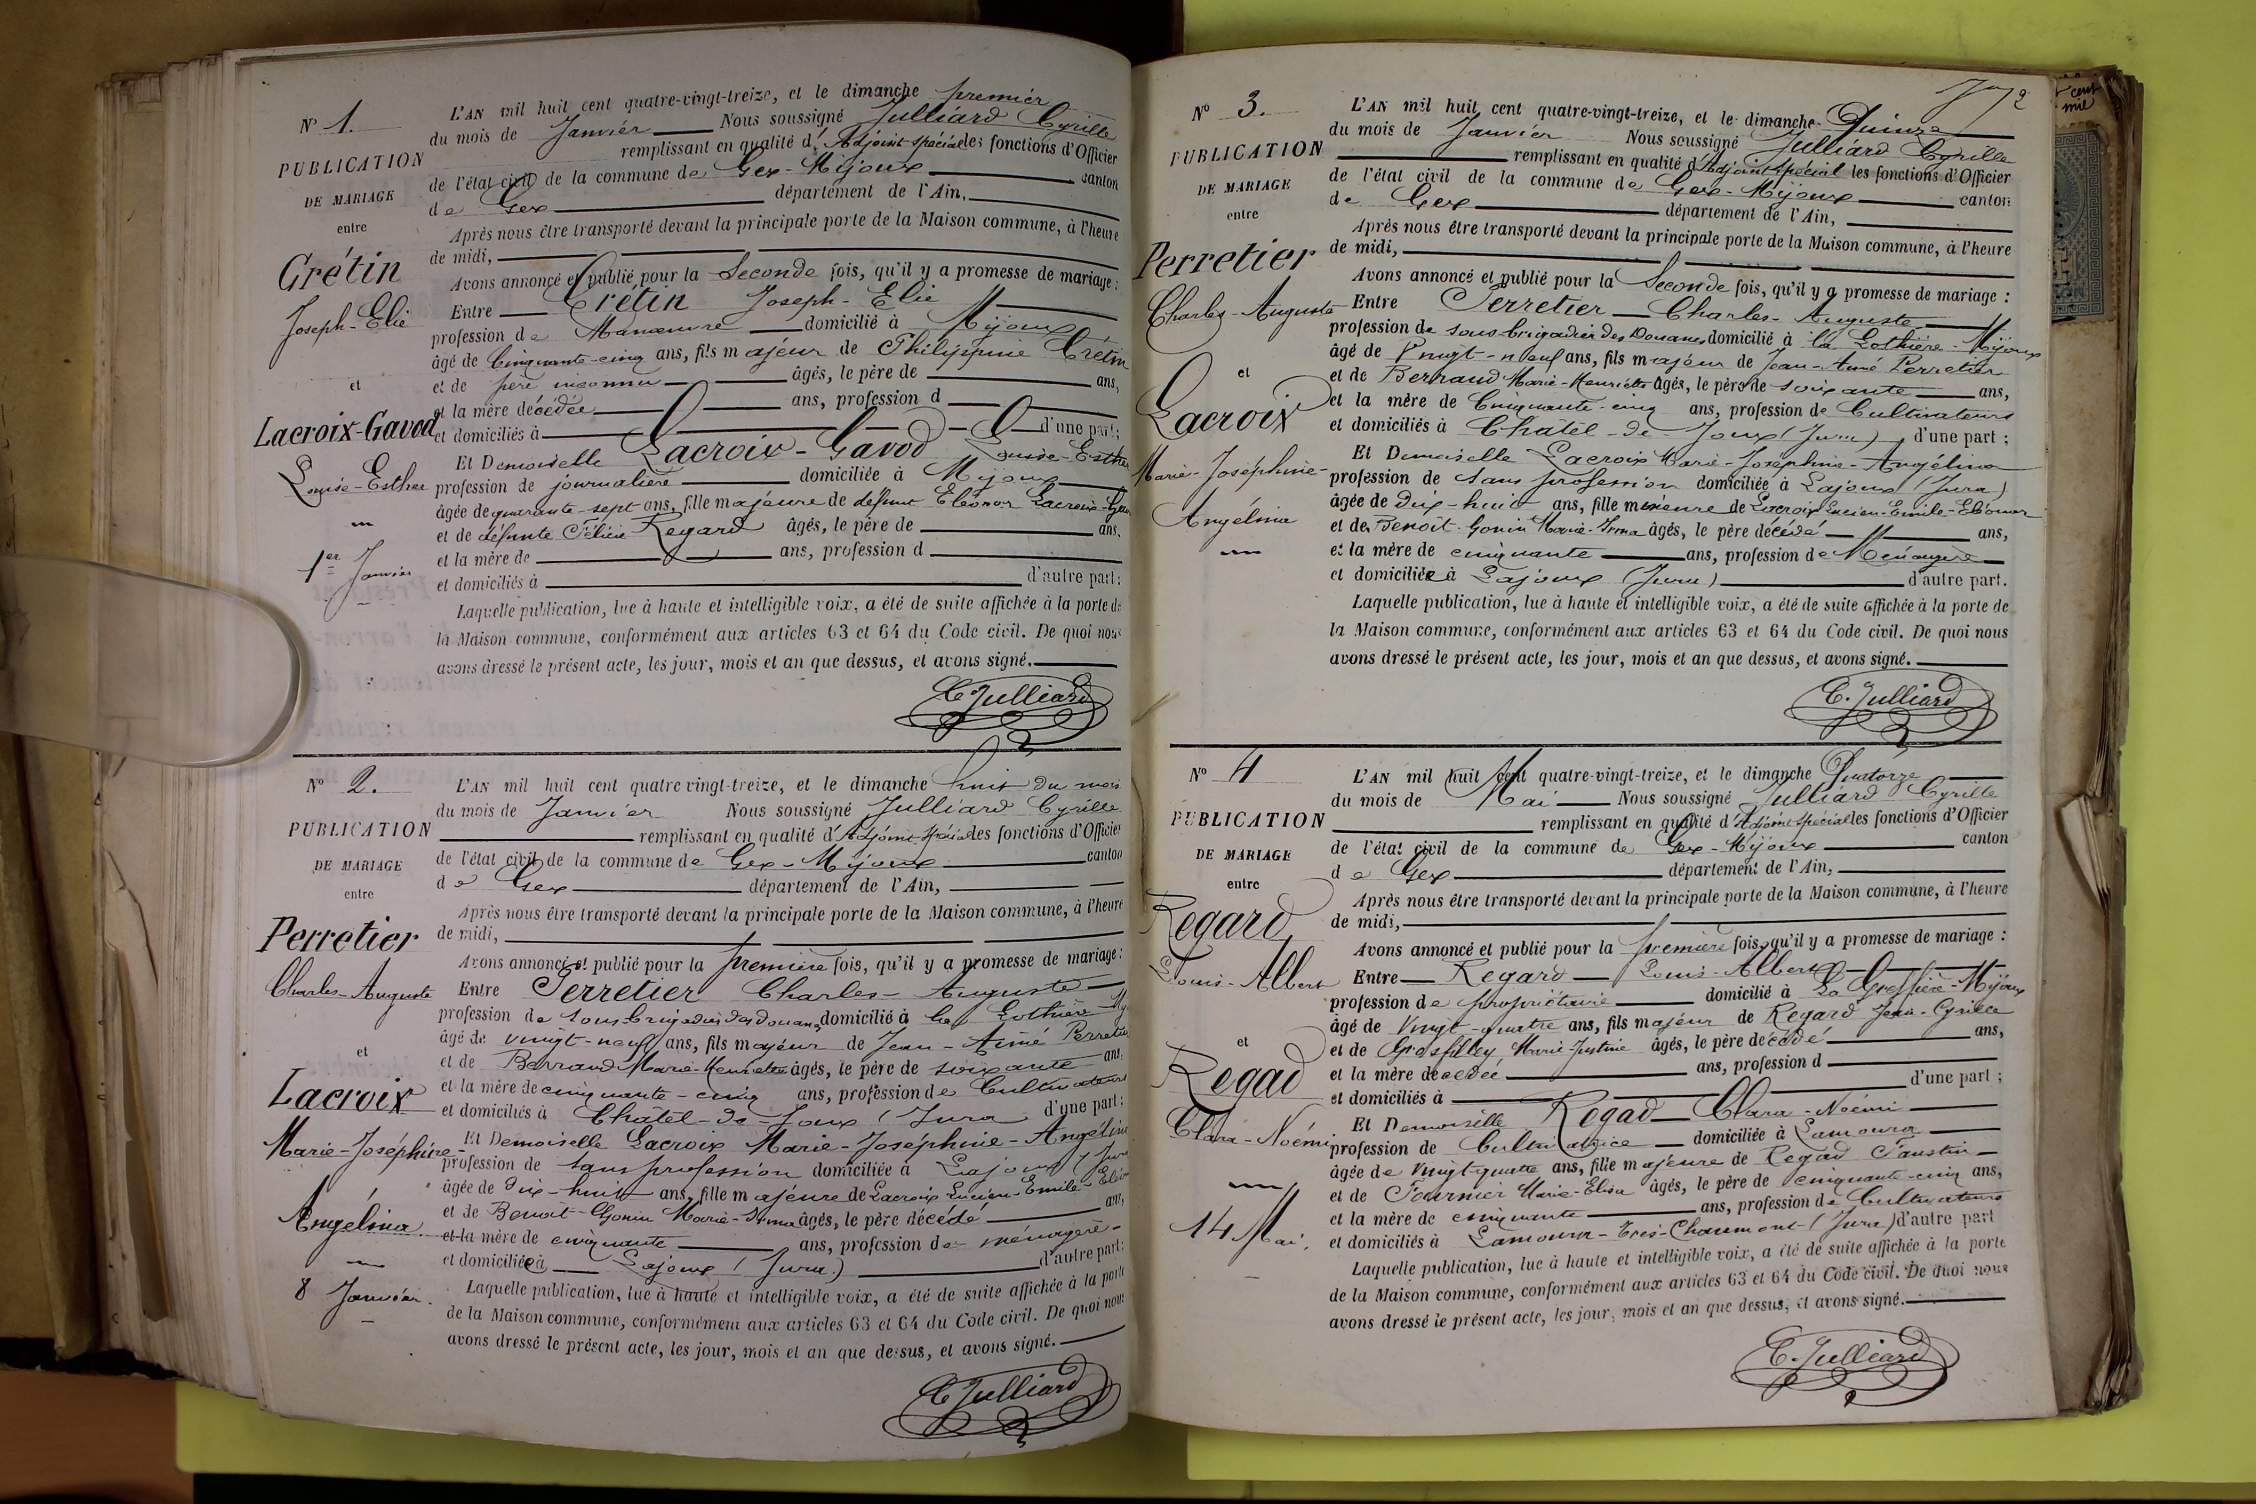 N° 1.
PUBLICATION
DE MARIAGE
entre
Crétin
Joseph-Elie
et
Lacroix-Gavod
Louise-Esther
1er Janvier
L'AN mil huit cent quatre-vingt-treize, et le dimanche premier
du mois de Janvier Nous soussigné Julliard Cyrille
remplissant en qualité d'Adjoint spécial les fonctions d'Officier
de l'état civil de la commune de Gex-Mijoux canton
de Gex département de l'Ain,
Après nous être transporté devant la principale porte de la Maison commune, à l'heure
de midi,
Avons annoncé et publié pour la Seconde fois, qu'il y a promesse de mariage :
Entre Crétin Joseph-Elie
profession de Manœuvre domicilié à Mijoux
âgé de Cinquante-cinq ans, fils majeur de Philippine Crétin
et de père inconnu âgés, le père de ans,
et la mère décédée ans, profession d
et domiciliés à d'une part ;
Et Demoiselle Lacroix-Gavod Louise-Esther
profession de journalière domiciliée à Mijoux
âgée de quarante-sept ans, fille majeure de défunt Eléonor Lacroix-
et de défunte Félicie Regard âgés, le père de ans,
et la mère de ans, profession d
et domiciliés à d'autre part :
Laquelle publication, lue à haute et intelligible voix, a été de suite affichée à la porte de
la Maison commune, conformément aux articles 63 et 64 du Code civil. De quoi nous
avons dressé le présent acte, les jour, mois et an que dessus, et avons signé.
C. Julliard
N° 2.
PUBLICATION
DE MARIAGE
entre
Perretier
Charles-Auguste
et
Lacroix
Marie-Joséphine-
Angélina
8 Janvier.
L'AN mil huit cent quatre vingt-treize, et le dimanche huit du mois
du mois de Janvier Nous soussigné Julliard Cyrille
remplissant en qualité d'Adjoint spécial les fonctions d'Officier
de l'état civil de la commune de Gex-Mijoux canton
de Gex département de l'Ain,
Après nous être transporté devant la principale porte de la Maison commune, à l'heure
de midi,
Avons annoncé et publié pour la première fois, qu'il y a promesse de mariage :
Entre Perretier Charles-Auguste
profession de sous-brigadier des douanes domicilié à la Lothière
âgé de vingt-neuf ans, fils majeur de Jean-Aimé Perretier
et de Berraud Marie-Henriette âgés, le père de soixante ans,
et la mère de cinquante-cinq ans, profession de Cultivateurs
et domiciliés à Châtel-de-Joux (Jura d'une part ;
Et Demoiselle Lacroix Marie-Joséphine-Angélina
profession de sans profession domiciliée à Lajoux (Jura
âgée de dix-huit ans, fille majeure de Lacroix Lucien-Emile-Eléonor
et de Benoit-Gonin Marie-Irma âgés, le père décédé ans,
et la mère de cinquante ans, profession de ménagère
et domiciliée à Lajoux (Jura) d'autre part :
Laquelle publication, lue à haute et intelligible voix, a été de suite affichée à la porte
de la Maison commune, conformément aux articles 63 et 64 du Code civil. De quoi nous
avons dressé le présent acte, les jour, mois et an que dessus, et avons signé.
C. Julliard
2
N° 3.
PUBLICATION
DE MARIAGE
entre
Perretier
Charles-Auguste
et
Lacroix
Marie-Joséphine-
Angélina
L'AN mil huit cent quatre-vingt-treize, et le dimanche Quinze
du mois de Janvier Nous soussigné Julliard Cyrille
remplissant en qualité d'Adjoint spécial les fonctions d'Officier
de l'état civil de la commune de Gex-Mijoux canton
de Gex département de l'Ain,
Après nous être transporté devant la principale porte de la Maison commune, à l'heure
de midi,
Avons annoncé et publié pour la Seconde fois, qu'il y a promesse de mariage :
Entre Perretier Charles-Auguste
profession de sous-brigadier des Douanes domicilié à la Lothière-Mijoux
âgé de vingt-neuf ans, fils majeur de Jean-Aimé Perretier
et de Berraud Marie-Henriette âgés, le père de soixante ans,
et la mère de Cinquante-cinq ans, profession de Cultivateurs
et domiciliés à Châtel-de-Joux (Jura) d'une part ;
Et Demoiselle Lacroix Marie-Joséphine-Angélina
profession de Sans profession domiciliée à Lajoux (Jura)
âgée de dix-huit ans, fille mineure de Lacroix Lucien-Emile-Eléonor
et de Benoit-Gonin Marie-Irma âgés, le père décédé ans,
et la mère de cinquante ans, profession de Ménagère
et domiciliée à Lajoux (Jura) d'autre part.
Laquelle publication, lue à haute et intelligible voix, a été de suite affichée à la porte de
la Maison commune, conformément aux articles 63 et 64 du Code civil. De quoi nous
avons dressé le présent acte, les jour, mois et an que dessus, et avons signé.
C. Julliard
N° 4
PUBLICATION
DE MARIAGE
entre
Regard
Louis-Albert
et
Regad
Clara-Noémi
14 Mai.
L'AN mil huit cent quatre-vingt-treize, et le dimanche Quatorze
du mois de Mai Nous soussigné Julliard Cyrille
remplissant en qualité d'Adjoint spécial les fonctions d'Officier
de l'état civil de la commune de Gex-Mijoux canton
de Gex département de l'Ain,
Après nous être transporté devant la principale porte de la Maison commune, à l'heure
de midi,
Avons annoncé et publié pour la première fois, qu'il y a promesse de mariage :
Entre Regard Louis-Albert
profession de propriétaire domicilié à La Greffière-Mijoux
âgé de Vingt-quatre ans, fils majeur de Regard Jean-Cyrille
et de Grosfilley Marie-Justine âgés, le père décédé ans,
et la mère décédée ans, profession d
et domiciliés à d'une part ;
Et Demoiselle Regad Clara-Noémi
profession de Cultivatrice domiciliée à Lamoura
âgée de Vingt-quatre ans, fille majeure de Regad Faustin
et de Fournier Marie-Elisa âgés, le père de cinquante-cinq ans,
et la mère de cinquante ans, profession de Cultivateurs
et domiciliés à Lamoura-Très-Chaumont (Jura) d'autre part
Laquelle publication, lue à haute et intelligible voix, a été de suite affichée à la porte
de la Maison commune, conformément aux articles 63 et 64 du Code civil. De quoi nous
avons dressé le présent acte, les jour, mois et an que dessus, et avons signé.
C. Julliard